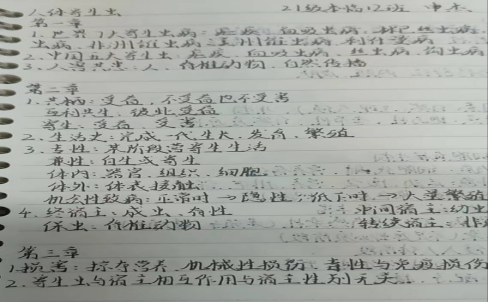 人体寄生虫 21级本临12班
第一章
1.世界 大寄生虫病:疟疾 血吸虫病 丝虫病
虫病 非洲锥虫病 美洲锥虫病 利什曼病
2.中国五大寄生虫:疟疾 血吸虫病 丝虫病 钩虫病
3.人兽共患:人、脊椎动物 自然传播
第二章
1.共栖:受益,不受益也不受害
互利共生:彼此受益
寄生:受益,受害
2.生活史:完成一代生长、发育、繁殖
3.专性:某阶段营寄生生活
兼性:自生或寄生
体内:器官、组织、细胞
体外:体表接触
机会性致病:正常时→隐性,低下时→大量繁殖
4.终宿主:成虫、有性 中间宿主:幼虫
保虫:脊椎动物 转续宿主:非
第三章
1.损害:掠夺营养、机械性损伤、毒性与免疫损伤
2.寄生虫与宿主相互作用与宿主性别无关